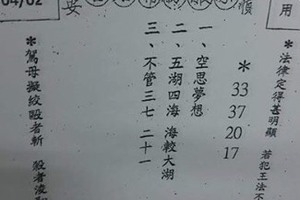 04/02
安
順
用
＊法律定得甚明顯 若犯王法不
＊
33
37
20
17
一、空思夢想
二、五湖四海 海較大湖
三、不管三七 二十一
＊罵母擬絞毆者斬 殺者凌